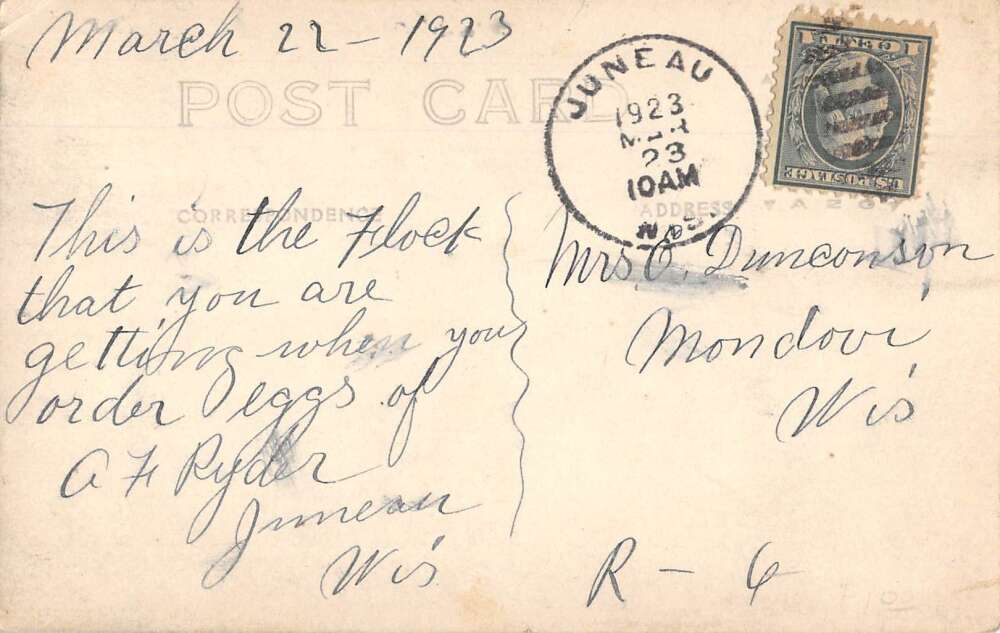 March 22 - 1923
POST CARD
JUNEAU
1923
MAR
23
10AM
WIS
U.S. POSTAGE
1 CENT 1
CORRESPONDENCE
ADDRESS
This is the Flock
that you are
getting when you
order eggs of
A F Ryder
Juneau
Wis
Mrs O. Dunconson
Mondovi
Wis
R - 6